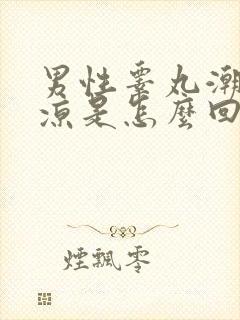 男性睪丸潮
凉是怎麼回
煙飄零